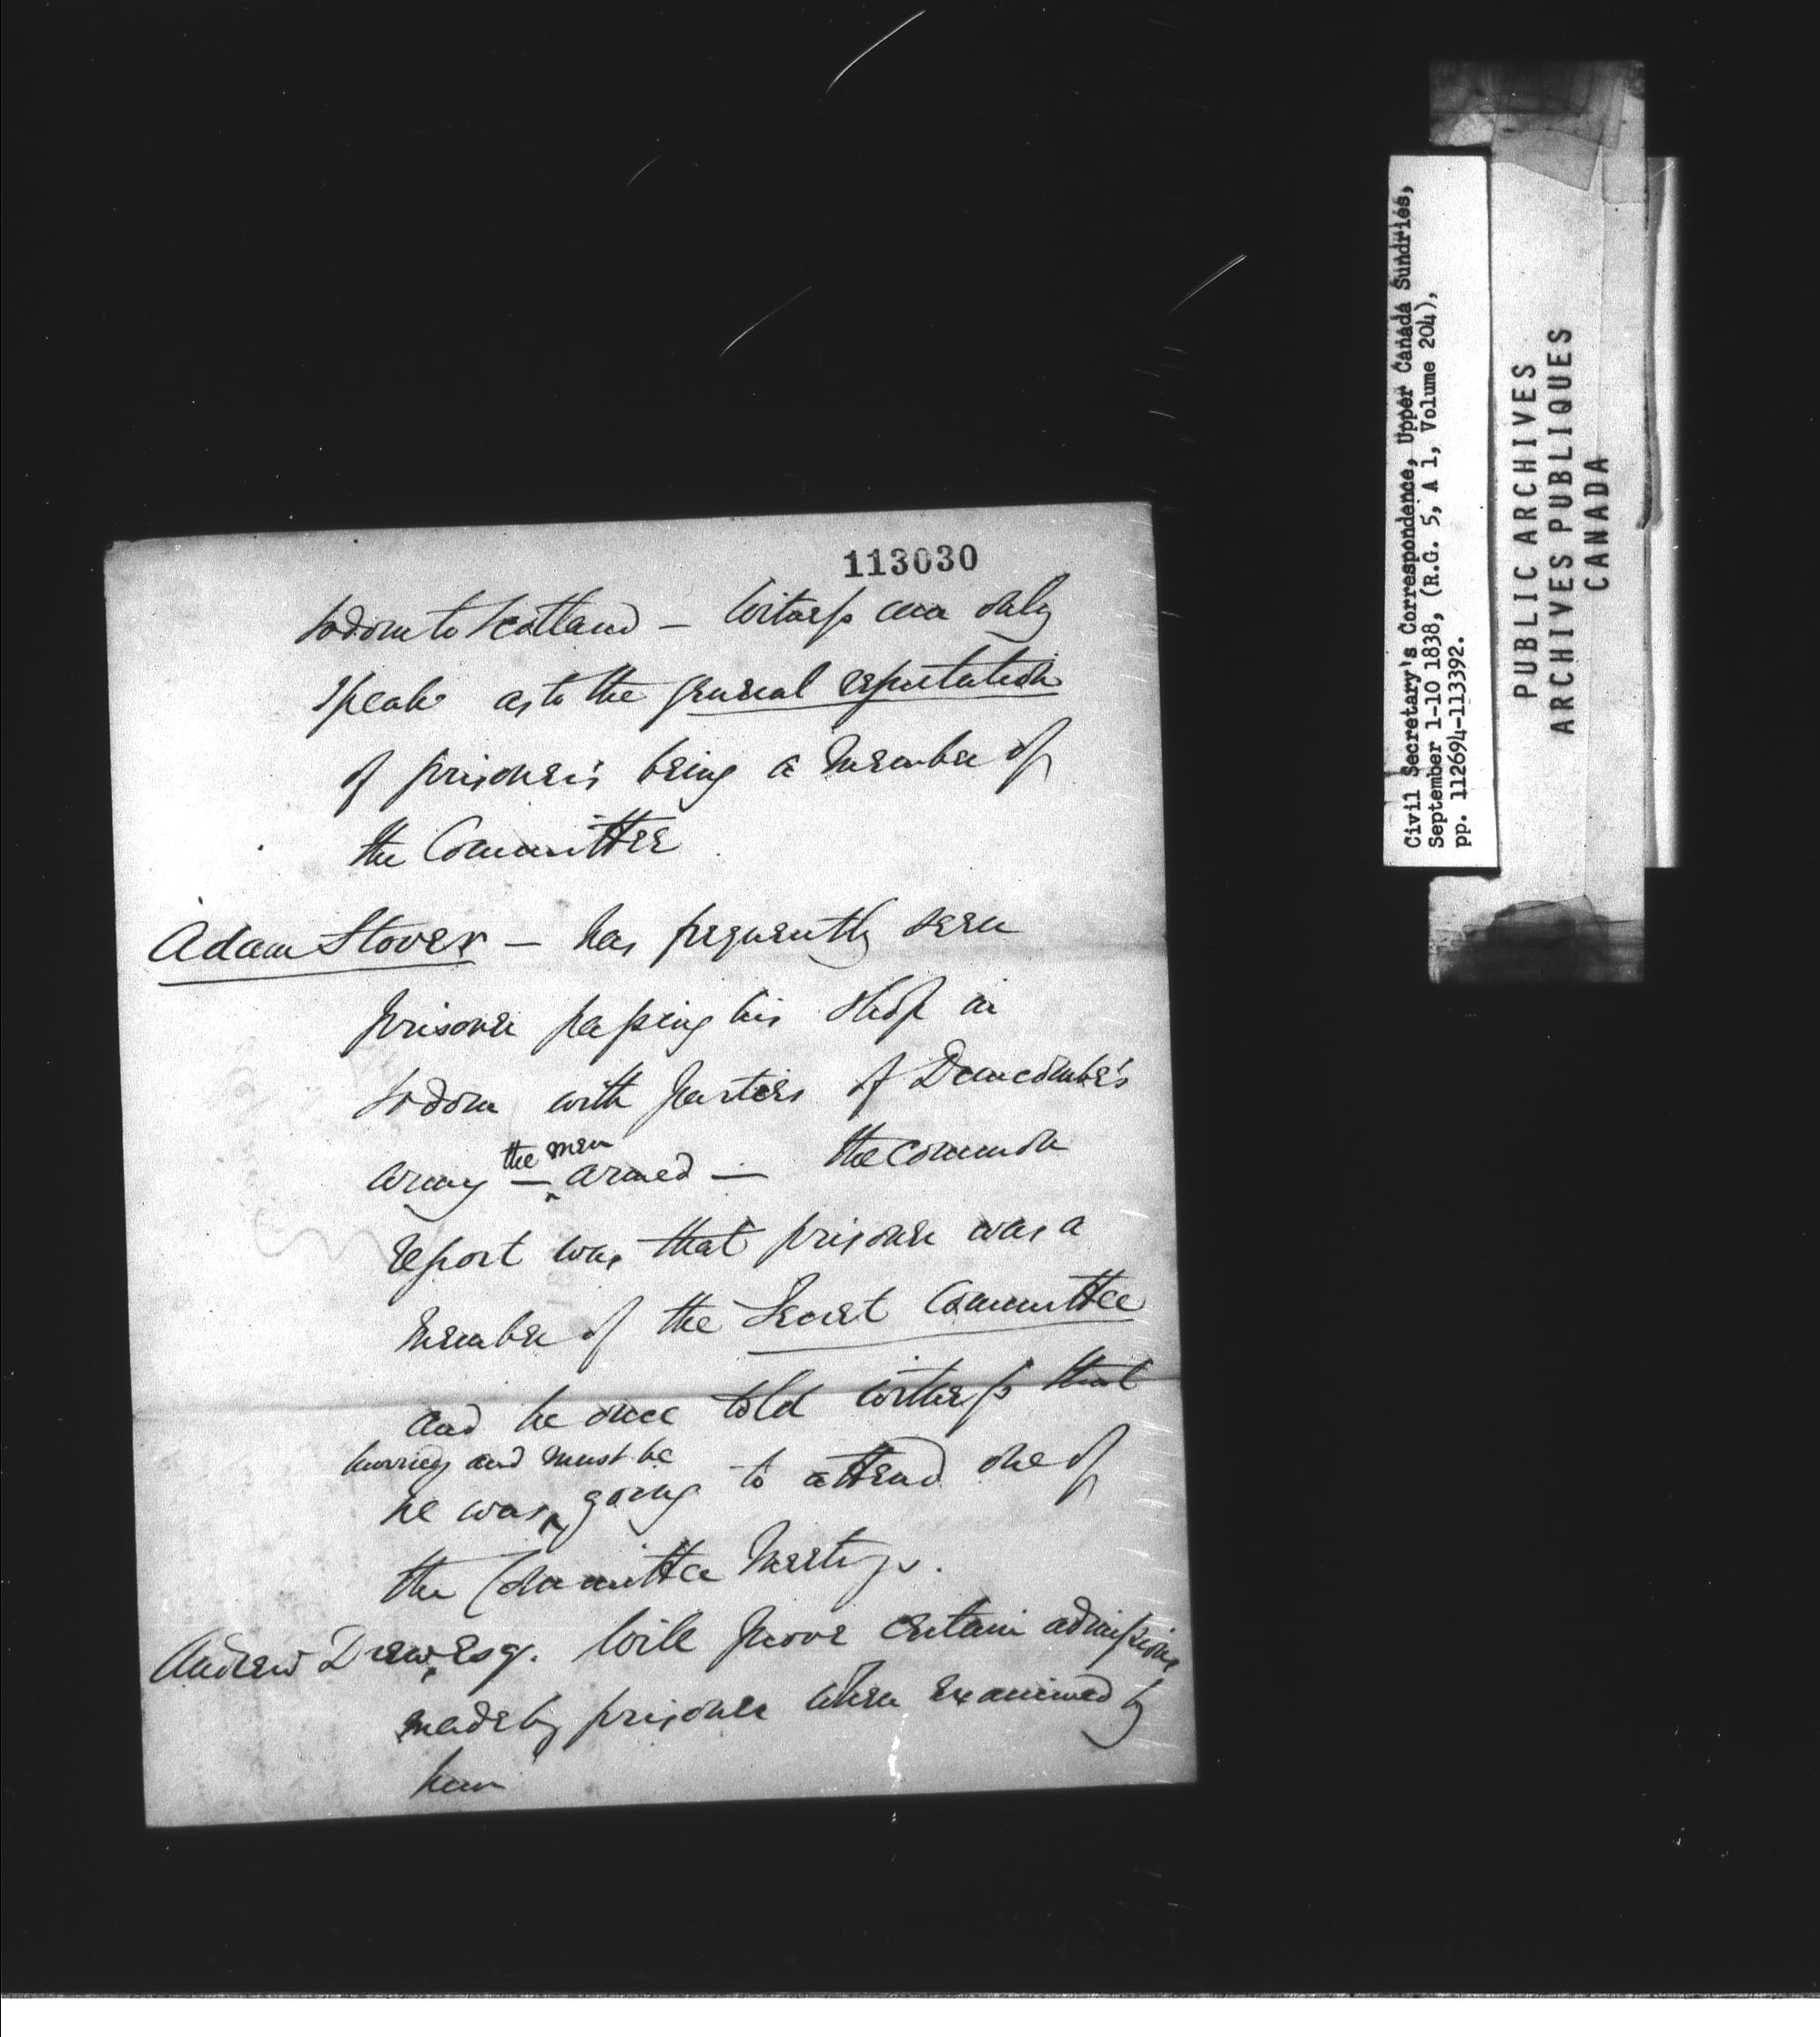 113030
Sodom to Scotland — Witness can only
speak as to the general reputation
of prisoner's being a Member of
the Committee
Adam Stover — has frequently seen
prisoner passing his shop in
Sodom with parties of Duncombe's
army — the men armed — the common
report was that prisoner was a
Member of the Secret Committee
and he once told witness that
he was hurried and must be going to attend one of
the Committee Meetings.
Andrew Drew, Esqr. Will prove certain admissions
made by prisoner when examined by
him
Civil Secretary's Correspondence, Upper Canada Sundries,
September 1-10 1838, (R.G. 5, A 1, Volume 204),
pp. 112694-113392.
PUBLIC ARCHIVES
ARCHIVES PUBLIQUES
CANADA